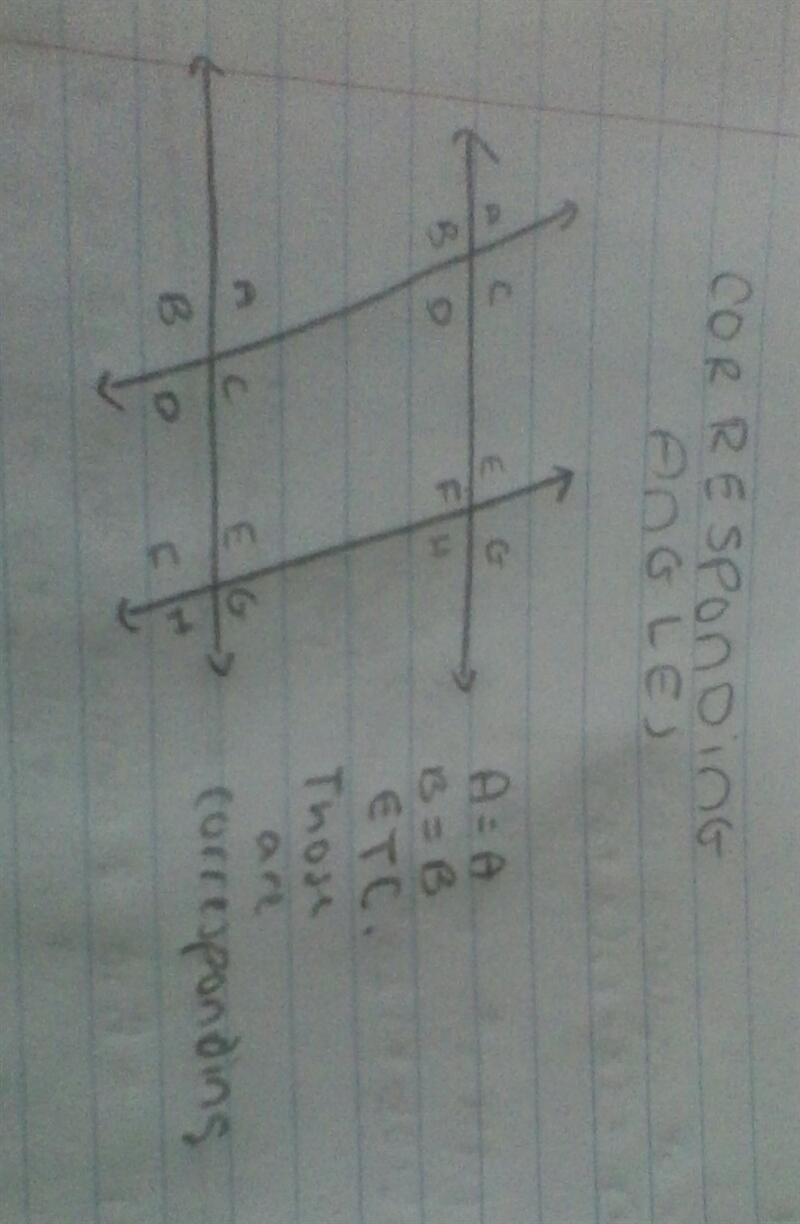 CORRESPONDinG
AnGLES
A C E G
B D F H
A C E G
B D F H
A = A
B = B
ETC.
Those
are
corresponding